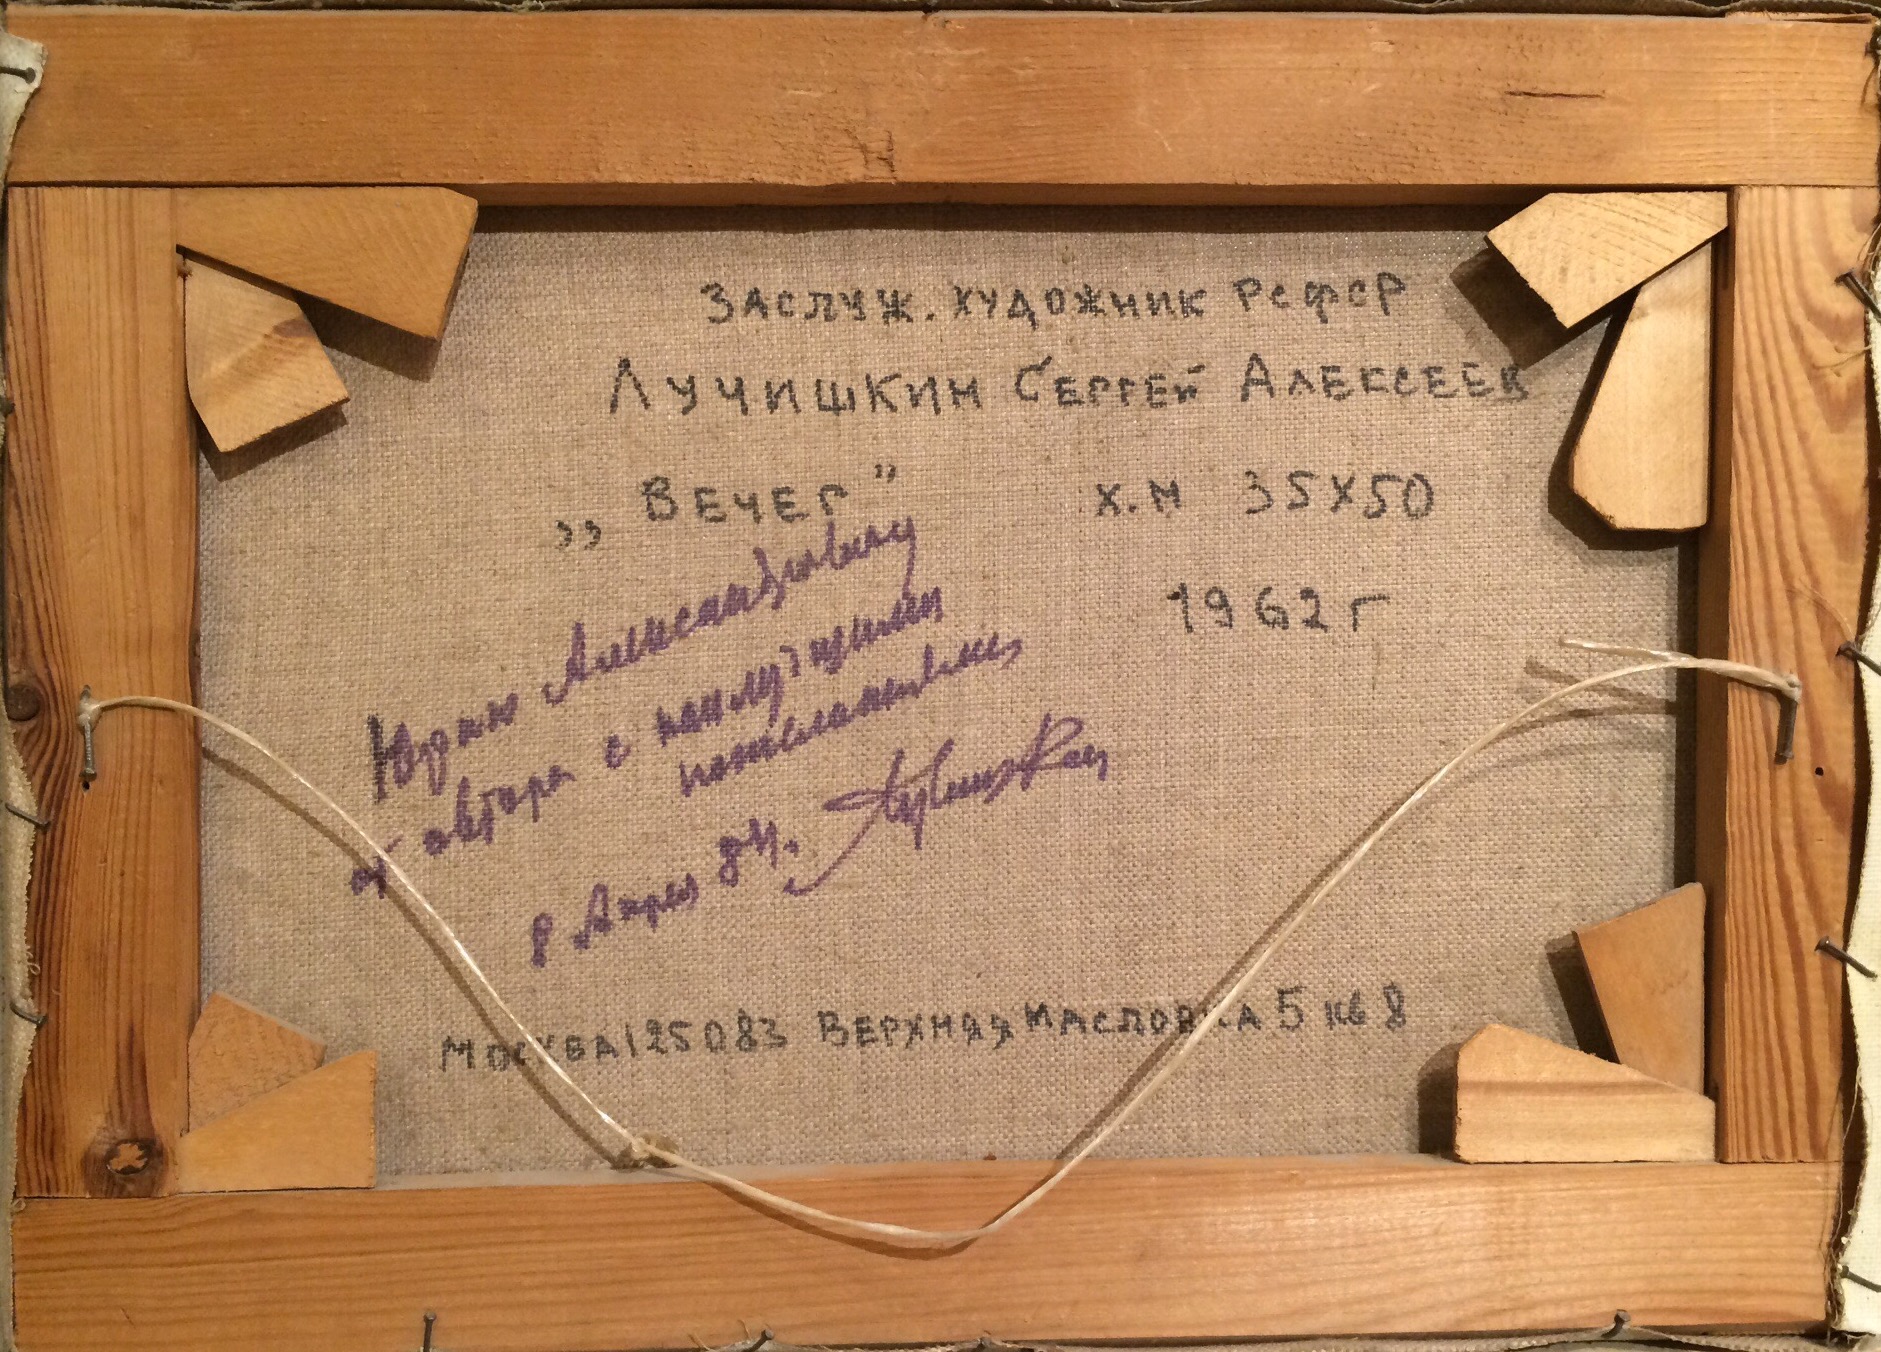 ЗАСЛУЖ. ХУДОЖНИК РСФСР
ЛУЧИШКИН СЕРГЕЙ АЛЕКСЕЕВ
„ ВЕЧЕР" Х.М 35X50
1962 г
Юрию Александровичу
от автора с наилучшими
пожеланиями
8 Апреля 84. Лучишкин
МОСКВА 125083 ВЕРХНЯЯ МАСЛОВКА 5 кв 8